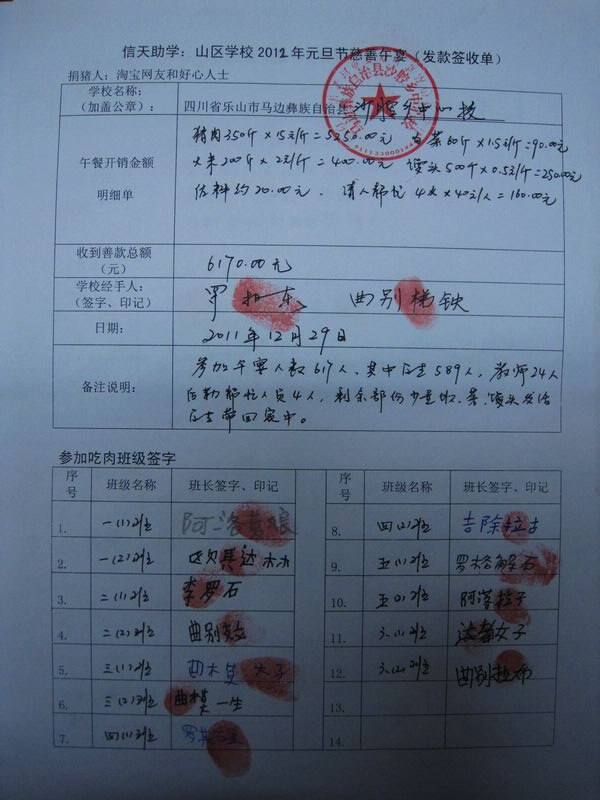 信天助学：山区学校2012年元旦节慈善午宴（发款签收单）
捐猪人：淘宝网友和好心人士
学校名称：
（加盖公章）：
四川省乐山市马边彝族自治县沙腔乡中心校
午餐开销金额
明细单
猪肉350斤×15元/斤=5250.00元 白菜60斤×1.5元/斤=90.00元
大米200斤×2元/斤=400.00元 馒头500个×0.5元/个=250.00元
佐料约20.00元． 请人帮忙 4人×40元/人=160.00元
收到善款总额
（元）
6170.00元
学校经手人：
（签字、印记）
罗 东 曲别梯铁
日期：
2011年12月29日
备注说明：
参加午宴人数617人、其中学生589人，教师24人
后勤帮忙人员4人，剩余部份少量饭、菜、馒头发给
学生带回家中。
参加吃肉班级签字
序号 班级名称 班长签字、印记 序号 班级名称 班长签字、印记
1. 一(1)班 阿洛
2. 一(2)班 其达木水
3. 二(1)班 李罗石
4. 二(2)班 曲别
5. 三(1)班 曲木莫大子
6. 三(2)班 曲木莫一生
7. 四(1)班 罗英
8. 四(2)班 吉除拉古
9. 五(1)班 罗格解石
10. 五(2)班 阿 拉子
11. 六(1)班 女子
12. 六(2)班 曲别拉布
13.
14.